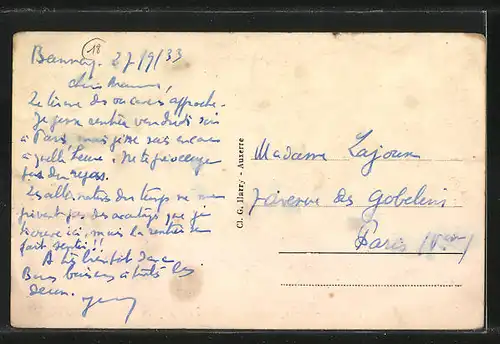 18
Bannay. 27/9/33
chère Maman,
Le terme des vacances approche.
Je pense rentrer vendredi soir
à Paris mais je ne sais encore
à quelle heure. Ne te préoccupe
pas du repas.
Les alternatives du temps ne me
privent pas des avantages que je
trouve ici, mais la rentrée se
fait sentir !!
A très bientôt donc
Bons baisers à toutes les
deux.
Cl. G. Harry - Auxerre
Madame Lajoux
avenue des Gobelins
Paris (Vème)